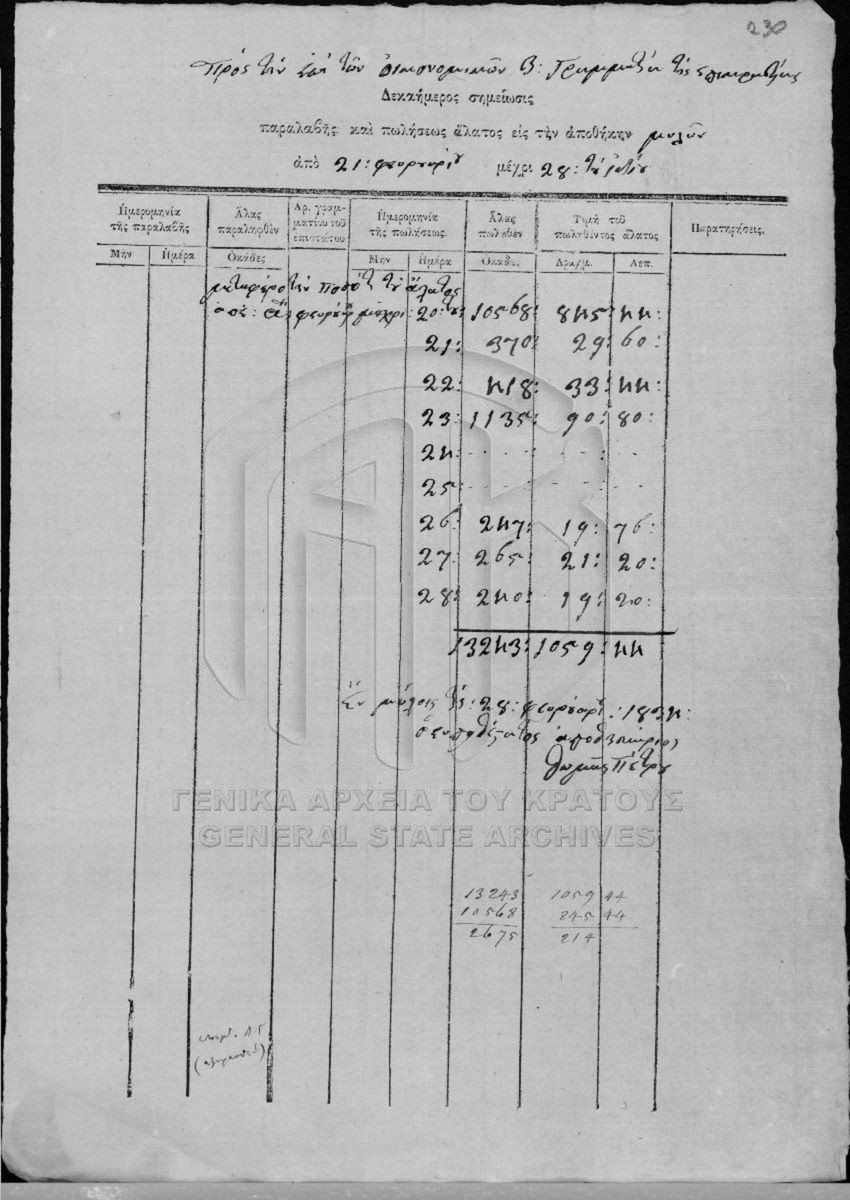 230
Πρὸς τὴν ἐπὶ τῶν Οἰκονομικῶν Β: Γραμματεία τῆς ἐπικρατείας
Δεκαήμερος σημείωσις
παραλαβῆς καὶ πωλήσεως ἅλατος εἰς τὴν ἀποθήκην μυλῶν
ἀπὸ 21: φευρουρίου μέχρι 28: τοῦ ἰδίου
Ἡμερομηνία τῆς παραλαβῆς Ἅλας παραληφθὲν Αρ. γραμματίου τοῦ ἐπιστάτου Ἡμερομηνία τῆς πωλήσεως. Ἅλας πωληθὲν Τιμὴ τοῦ πωληθέντος ἅλατος Παρατηρήσεις.
Μὴν Ἡμέρα Ὀκάδες Μὴν Ἡμέρα Ὀκάδες Δραχμ. Λεπ.
μεταφέρο τὴν ποσότ τοῦ ἅλατος
ἀπὸ: φευρουαρ μέχρι: 20: 10568: 845: 44:
21: 370: 29: 60:
22: 418: 33: 44:
23: 1135: 90: 80:
24: - - - - : - -
25: - - - - : - -
26: 247: 19: 76:
27: 265: 21: 20:
28: 240: 19: 20:
13243: 1059: 44
Ἐν μύλοις τῆς: 28: φευρουαρί: 1834:
ὁ ἀποθηκάριος
θωμᾶς Πέτρου
ΓΕΝΙΚΑ ΑΡΧΕΙΑ ΤΟΥ ΚΡΑΤΟΥΣ
GENERAL STATE ARCHIVES
13243 1059 44
10568 845 44
2675 214